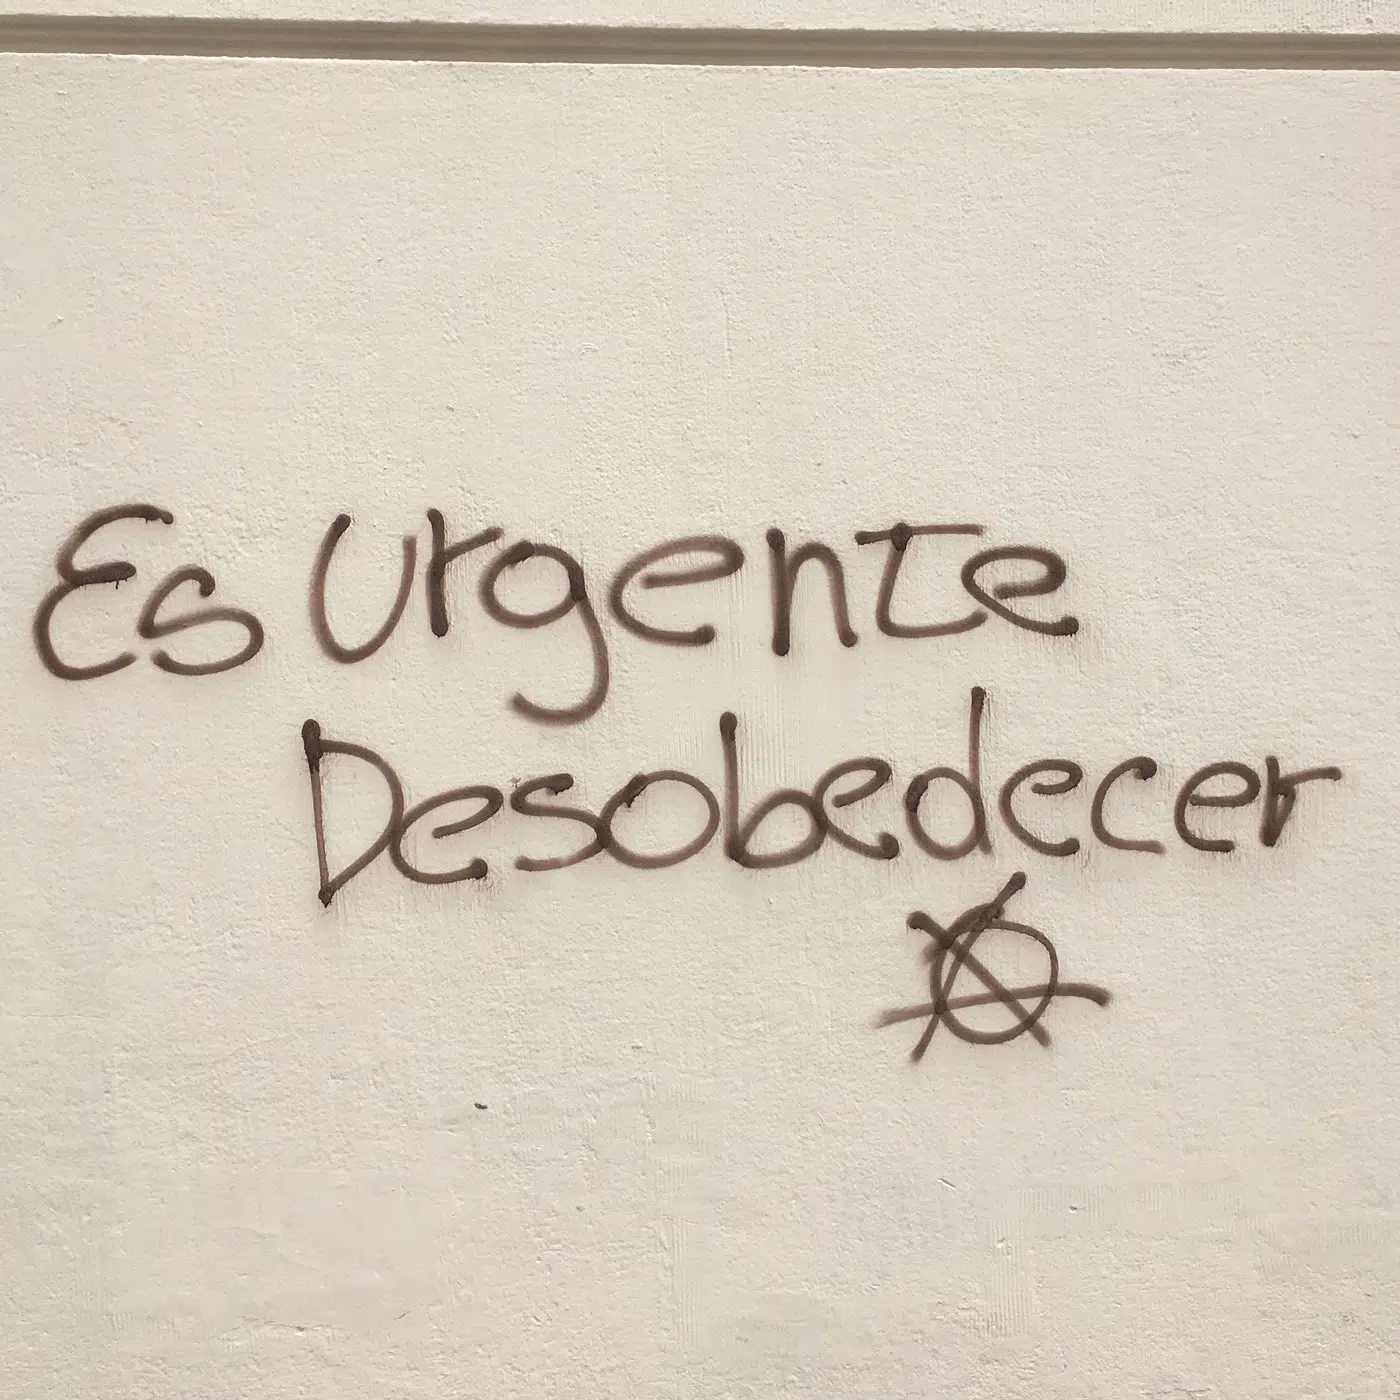 Es Urgente
Desobedecer